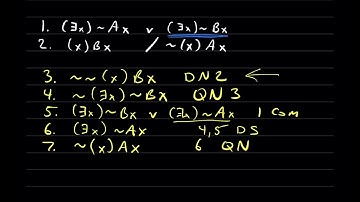 1. (∃x)~Ax v (∃x)~Bx
2. (x)Bx / ~(x)Ax
3. ~~(x)Bx DN2 ←
4. ~(∃x)~Bx QN3
5. (∃x)~Bx v (∃x)~Ax 1 Com
6. (∃x)~Ax 4,5 DS
7. ~(x)Ax 6 QN